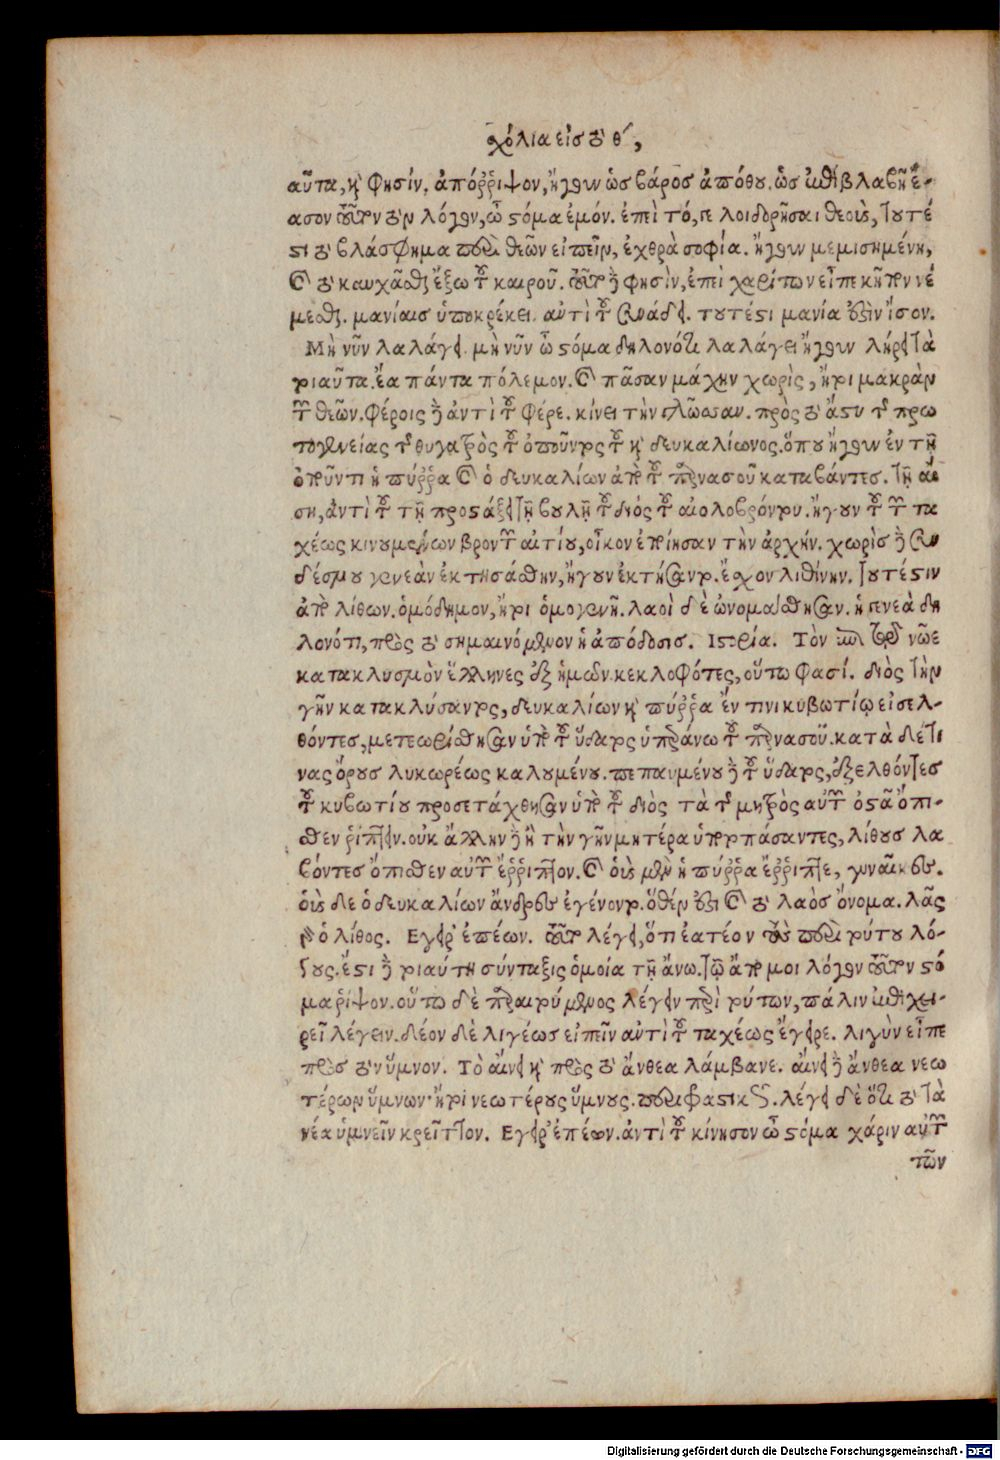 χόλια εἰς τὸ θʹ,
αῦτα, καὶ φησίν. ἀπόῤῥιψον, ἤγουν ὡς βάρος ἀπόθου. ὡς ἐπιβλαβῆ ἔ-
ασον τοῦτον τὸν λόγον, ὦ στόμα ἐμόν. ἐπεὶ τό, γε λοιδορῆσαι θεοὺς, τουτέ
στι τὸ βλάσφημα περὶ θεῶν εἰπεῖν, ἐχθρὰ σοφία. ἤγουν μεμισημένη,
καὶ τὸ καυχᾶσθαι ἔξω τοῦ καιροῦ. τοῦτο δὲ φησὶν, ἐπεὶ χαρίτων εἶπε κῆπον νέ
μεσθαι. μανίαισ ὑποκρέκει. αντὶ τοῦ συνάδει. τουτέστι μανία ἐστὶν ἴσον.
Μὴ νῦν λαλάγει. μὴ νῦν ὦ στόμα δηλονότι λαλάγει ἤγουν λήρει τὰ
τοιαῦτα. ἔα πάντα πόλεμον. καὶ πᾶσαν μάχην χωρὶς, ἤτοι μακρὰν
τῶν θεῶν. φέροις δὲ ἀντὶ τοῦ φέρε. κίνει τὴν γλῶσσαν. πρὸς τὸ ἄστυ τῆς πρω
τογενείας τῆς θυγατρὸς τοῦ ὀποῦντος τοῦ καὶ δευκαλίωνος. ὅπου ἤγουν ἐν τῇ
ὀποῦντι ἡ πύῤῥα καὶ ὁ δευκαλίων ἀπὸ τοῦ παρνασοῦ καταβάντες. τῇ αἴ
σῃ, ἀντὶ τοῦ τῇ προστάξει τῇ βουλῇ τοῦ διός τοῦ αἰολοβρόντου. ἤγουν τοῦ τῶν τα
χέως κινουμένων βροντῶν αἰτίου, οἶκον ἐποίησαν τὴν ἀρχήν. χωρὶς δὲ συν
δέσμου γενεὰν ἐκτησάσθην, ἤγουν ἐκτήσαντο. ἔσχον λιθίνην. τουτέστιν
ἀπὸ λίθων. ὁμόδημον, ἤτοι ὁμογενῆ. λαοὶ δὲ ὠνομάσθησαν. ἡ γενεὰ δη
λονότι, πρὸς τὸ σημαινόμενον ἡ ἀπόδοσις. Ιστορία. Τὸν ἐπὶ τοῦ νῶε
κατακλυσμὸν ἕλληνες ἐξ ἡμῶν κεκλοφότες, οὕτω φασί. διὸς τὴν
γῆν κατακλύσαντος, δευκαλίων καὶ πύῤῥα ἔν τινι κιβωτίῳ εἰσελ-
θόντες, μετεωρίσθησαν ὑπὸ τοῦ ὕδατος ὑπεράνω τοῦ παρνασοῦ. κατὰ δέ τι
νας ὄρους λυκωρέως καλουμένου. πεπαυμένου δὲ τοῦ ὕδατος, ἐξελθόντες
τοῦ κιβωτίου προσετάχθησαν ὑπὸ τοῦ διὸς τὰ τῆς μητρὸς αὐτῶν ὀστᾶ ὄπι-
σθεν ῥίπτειν. οὐκ ἄλλην δὲ ἢ τὴν γῆν μητέρα ὑποτοπάσαντες, λίθους λα
βόντες ὄπισθεν αὐτῶν ἔῤῥιπτον. καὶ οἷς μὲν ἡ πύῤῥα ἔῤῥιπτε, γυναῖκες.
οἷς δε ὁ δευκαλίων ἄνδρες ἐγένοντο. ὅθέν ἐστι καὶ τὸ λαὸς ὄνομα. λᾶς
γὰρ ὁ λίθος. Εγειρʹ ἐπέων. τοῦτο λέγει, ὅτι ἐατέον τοὺς περὶ τούτου λό-
γους. ἔστι δὲ τοιαύτη σύνταξις ὁμοία τῇ ἄνω. τῷ ἄπο μοι λόγον τοῦτον στό
μα ῥῖψον. οὕτω δὲ παραιτούμενος λέγειν περὶ τούτων, πάλιν ἐπιχει-
ρεῖ λέγειν. δέον δὲ λιγέως εἰπεῖν αντὶ τοῦ ταχέως ἔγειρε. λιγὺν εἶπε
πρὸς τὸν ὕμνον. Τὸ αἴνει καὶ πρὸς τὸ ἄνθεα λάμβανε. αἴνει δὲ ἄνθεα νεω
τέρων ὕμνων· ἤτοι νεωτέρους ὕμνους. περιφραστικῶς. λέγει δὲ ὅτι τὸ τὰ
νέα ὑμνεῖν κρεῖττον. Εγειρʹ ἐπέων. ἀντὶ τοῦ κίνησον ὦ στόμα χάριν αὐτῶν
τῶν
Digitalisierung gefördert durch die Deutsche Forschungsgemeinschaft - DFG